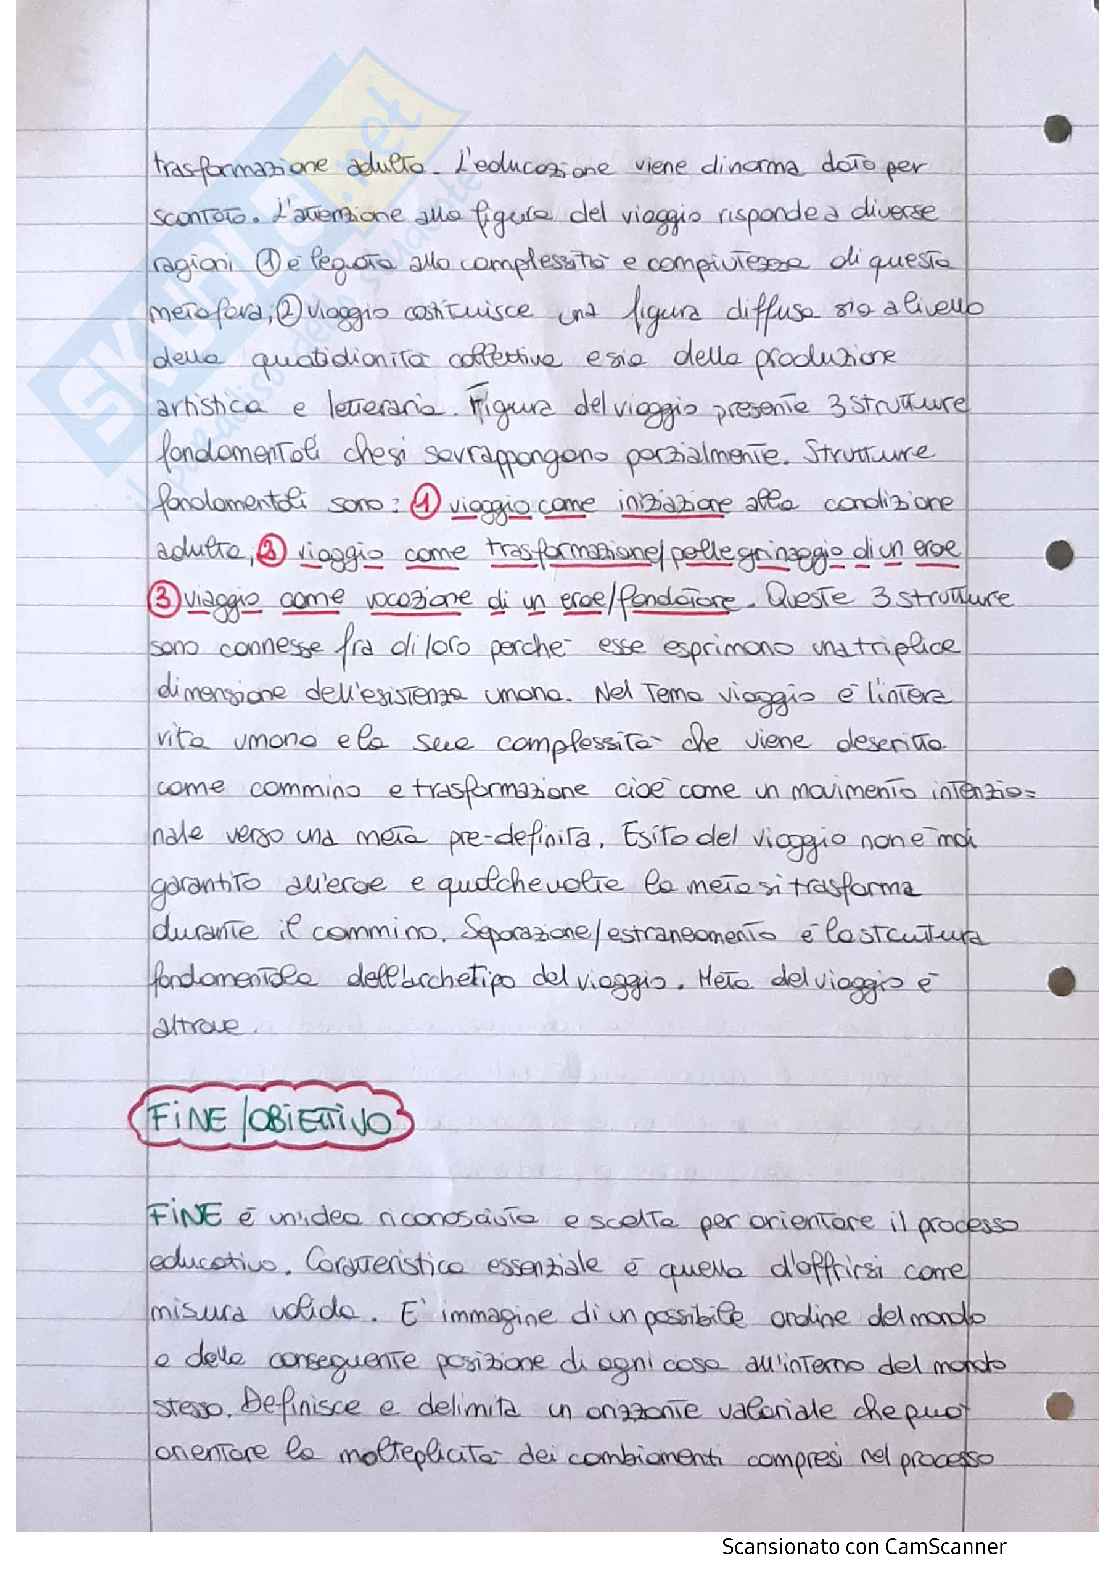 trasformazione adulta. L'educazione viene di norma dato per
scontato. L'attenzione alla figura del viaggio risponde a diverse
ragioni ① è legata alla complessità e compiutezza di questa
metafora, ② viaggio costituisce una figura diffusa sia a livello
della quotidianità collettiva e sia della produzione
artistica e letteraria. Figura del viaggio presenta 3 strutture
fondamentali che si sovrappongono parzialmente. Strutture
fondamentali sono: ① viaggio come iniziazione alla condizione
adulta, ② viaggio come trasformazione/pellegrinaggio di un eroe
③ viaggio come vocazione di un eroe/fondatore. Queste 3 strutture
sono connesse fra di loro perché esse esprimono una triplice
dimensione dell'esistenza umana. Nel tema viaggio è l'intera
vita umana e la sua complessità che viene descritta
come cammino e trasformazione cioè come un movimento intenzio=
nale verso una meta pre-definita. Esito del viaggio non è mai
garantito all'eroe e qualche volte la meta si trasforma
durante il cammino. Separazione/estraneamento è la struttura
fondamentale dell'archetipo del viaggio. Meta del viaggio è
altrove.
FINE/OBIETTIVO
FINE è un'idea riconosciuta e scelta per orientare il processo
educativo. Caratteristica essenziale è quella d'offrirsi come
misura valida. E' immagine di un possibile ordine del mondo
e della conseguente posizione di ogni cosa all'interno del mondo
stesso. Definisce e delimita un orizzonte valoriale che può
orientare la molteplicità dei cambiamenti compresi nel processo
SKUOLA.net
il paradiso dello studente
Scansionato con CamScanner